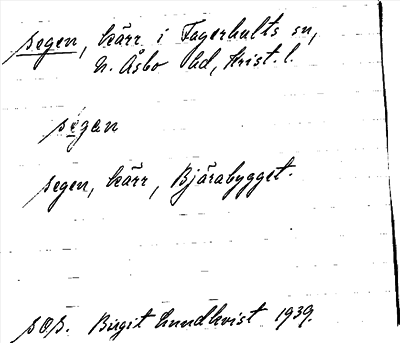 segen, kärr i Fagerhults sn,
N. Åsbo hd, Krist. l.
segan
segen, kärr, Bjärabygget.
SOS. Birgit Lundkvist 1939.